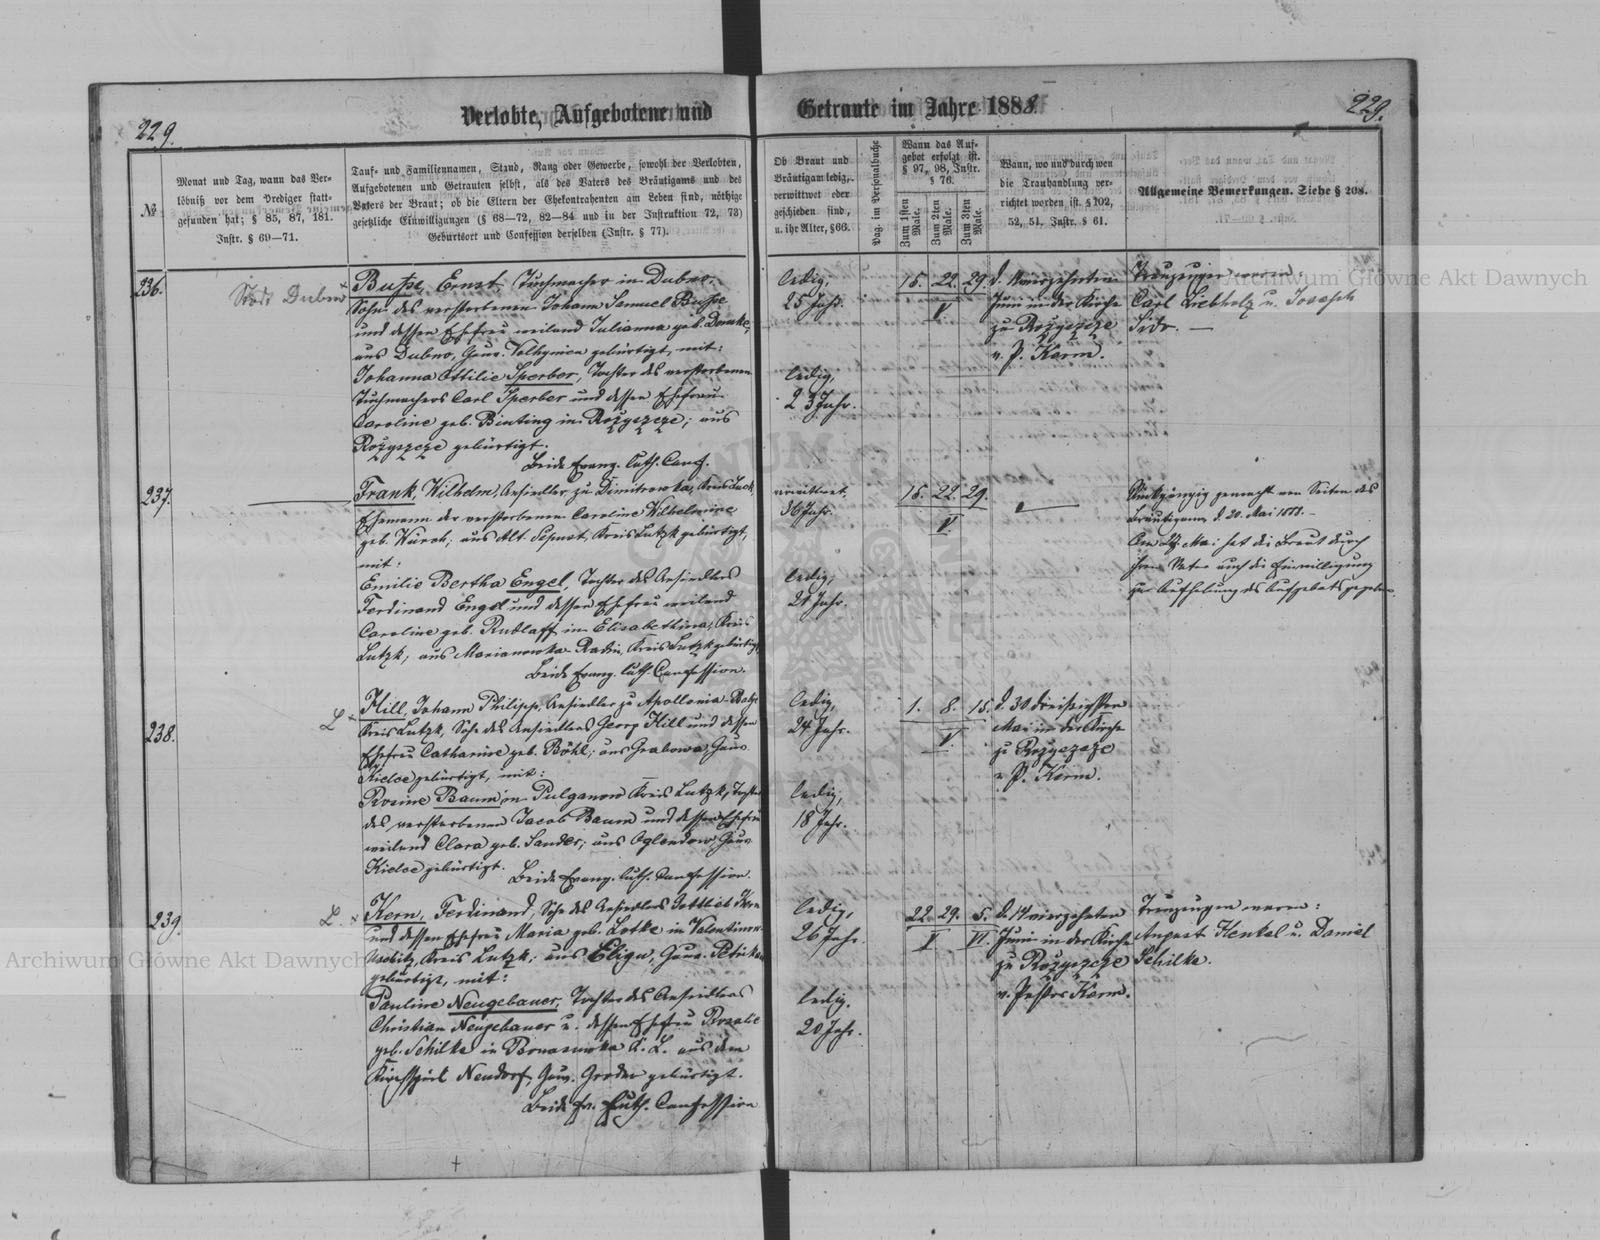 229.
Verlobte, Aufgebotene und
Getraute im Jahre 1888.
229.
№
Monat und Tag, wann das Ver-
löbniß vor dem Prediger statt-
gefunden hat; § 85, 87, 181.
Instr. § 69—71.
Tauf- und Familiennamen, Stand, Rang oder Gewerbe, sowohl der Verlobten,
Aufgebotenen und Getrauten selbst, als des Vaters des Bräutigams und des
Vaters der Braut; ob die Eltern der Ehekontrahenten am Leben sind, nöthige
gesetzliche Einwilligungen (§ 68—72, 82—84 und in der Instruktion 72, 73)
Geburtsort und Confession derselben (Instr. § 77).
Ob Braut und
Bräutigam ledig,
verwittwet oder
geschieden sind,
u. ihr Alter, § 66.
Pag. im Personalbuche
Wann das Auf-
gebot erfolgt ist.
§ 97, 98, Instr.
§ 76.
Zum 1sten Male.
Zum 2ten Male.
Zum 3ten Male.
Wann, wo und durch wen
die Trauhandlung ver-
richtet worden ist. § 102,
52, 51. Instr. § 61.
Allgemeine Bemerkungen. Siehe § 208.
236.
Stadt Dubno
Busse, Ernst, Tuchmacher in Dubno,
Sohn des verstorbenen Johann Samuel Busse
und dessen Ehefrau weiland Julianna geb.
aus Dubno, Gouv. Volhynien gebürtigt, mit:
Johanna Ottilie Sperber, Tochter des verstorbenen
Tuchmachers Carl Sperber und dessen Ehefrau
Caroline geb. Binting in Rożyszcze; aus
Rożyszcze gebürtigt.
Beide Evang. luth. Conf.
ledig,
25 Jahr.
ledig,
23 Jahr.
15. 22. 29.
V.
d. Juni in der Kirche
zu Rożyszcze
v. P. Kerm.
Trauzeugen waren:
Carl Liebholz u. Joseph
237.
Frank, Wilhelm, Ansiedler zu Dimitrowka, Kreis Luck,
Ehemann der verstorbenen Caroline Wilhelmine
geb. ; aus Alt , Kreis Lutzk gebürtigt,
mit:
Emilie Bertha Engel, Tochter des Ansiedlers
Ferdinand Engel und dessen Ehefrau weiland
Caroline geb. Rudlaff in Elisabethina, Kreis
Lutzk; aus Marianowka , Kreis Lutzk gebürtigt.
Beide Evang. luth. Confession.
verwittwet,
36 Jahr.
ledig,
21 Jahr.
15. 22. 29.
V.
Rückgängig gemacht von Seiten des
Bräutigams d. 20. Mai 1888.
Am Mai hat die Braut durch
ihren Vater auch die Einwilligung
zur Aufhebung des Aufgebots gegeben.
238.
L. ×
Hill, Johann Philipp, Ansiedler zu Apollonia
Kreis Lutzk, Sohn des Ansiedlers Georg Hill und dessen
Ehefrau Catharine geb. Böhl; aus Grabowa Gouv.
Kielce gebürtigt, mit:
Rosine Baum in Pulganow Kreis Lutzk, Tochter
des verstorbenen Jacob Baum und dessen Ehefrau
weiland Clara geb. Sander; aus Oglendow Gouv.
Kielce gebürtigt.
Beide Evang. luth. Confession.
ledig,
24 Jahr.
ledig,
18 Jahr.
1. 8. 15.
V.
d. 30 dreißigsten
Mai in der Kirche
zu Rożyszcze
v. P. Kerm.
239.
L. ×
Kern, Ferdinand, Sohn des Ansiedlers Gottlieb Kern
und dessen Ehefrau Maria geb. Lotke in
Kreis Lutzk; aus Eligu, Gouv. Petrikau
gebürtigt, mit:
Pauline Neugebauer, Tochter des Ansiedlers
Christian Neugebauer u. dessen Ehefrau Rosalie
geb. Schilke in K. L. aus dem
Kirchspiel Neudorf, Gouv. Grodno gebürtigt.
Beide Ev. Luth. Confession
ledig,
26 Jahr.
ledig.
20 Jahr.
22. 29. 5.
V. VI.
d. 14 vierzehnten
Juni in der Kirche
zu Rożyszcze
v. Pastor Kerm.
Trauzeugen waren:
August Henkel u. Daniel
Schilke.
Archiwum Główne Akt Dawnych
Archiwum Główne Akt Dawnych